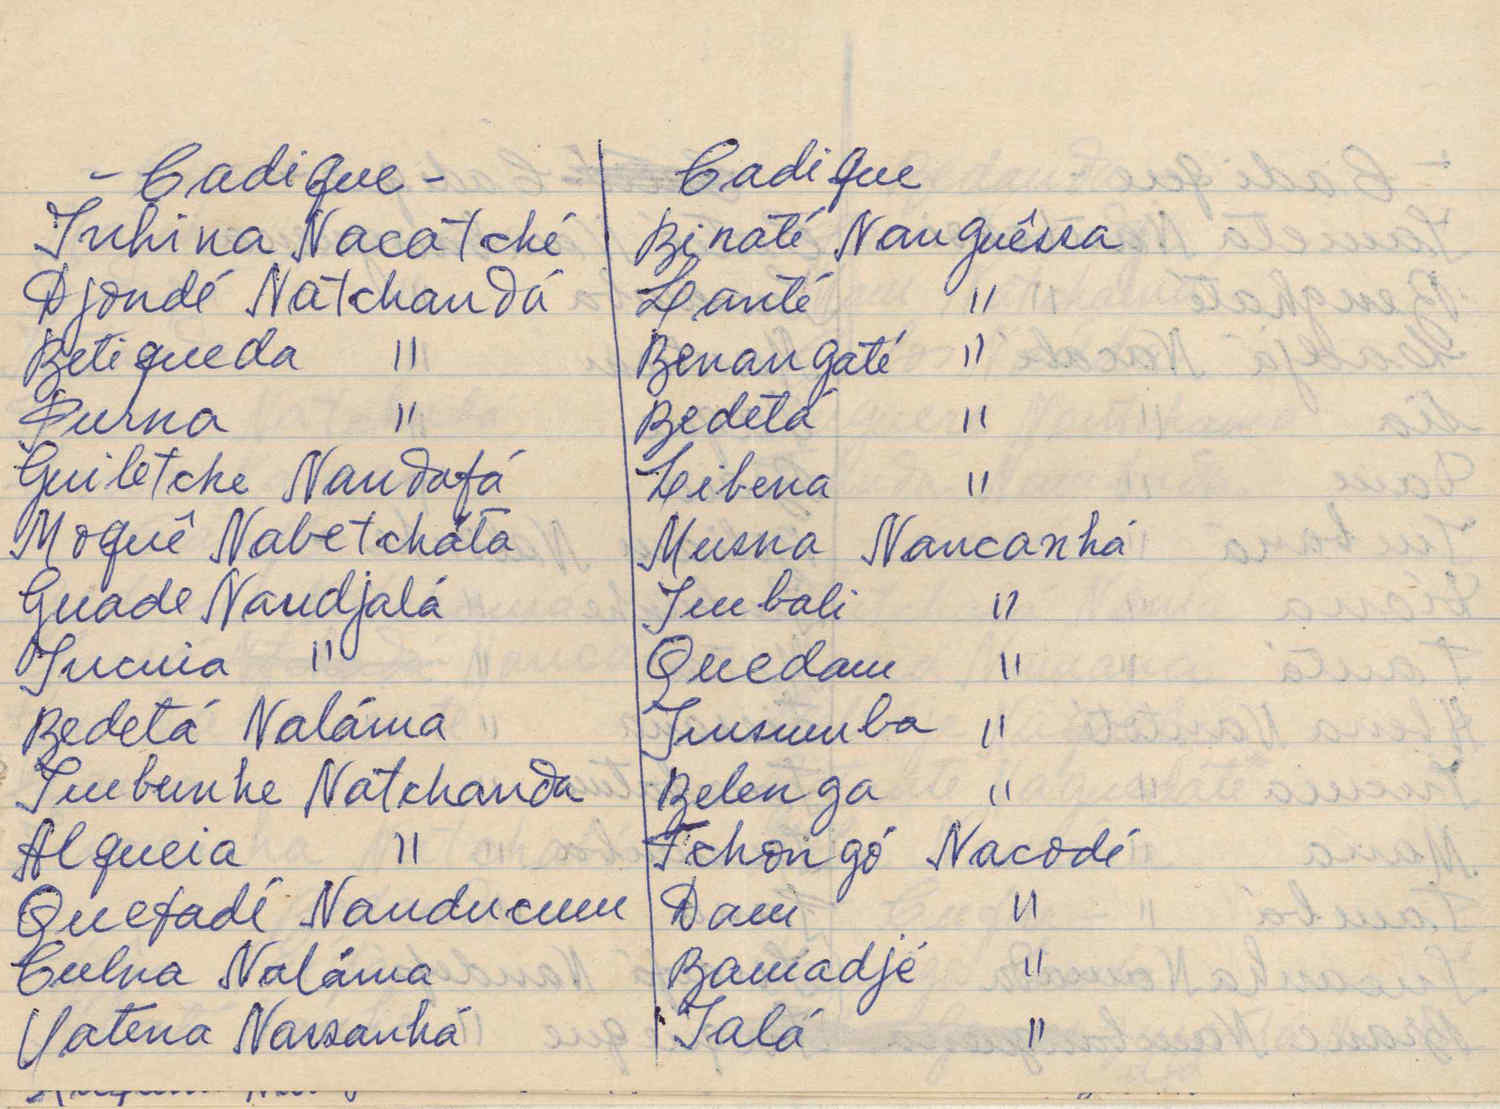 - Cadique -
Inhina Nacatché
Djondé Natchandá
Betiqueda "
Furna "
Guiletche Nandafá
Moquê Nabetcháta
Guade Nandjalá
Incuia "
Bedetá Naláma
Imbunhe Natchanda
Alqueia "
Quefadí Nanducum
Culna Naláma
Watena Nassanhá
Cadique
Binaté Nanguêssa
Lanté "
Benangaté "
Bedetá "
Libena "
Musna Nancanhá
Imbali "
Quedam "
Insumba "
Belenga "
Tchongó Nacodé
Dam "
Bamadjé "
Ialá "